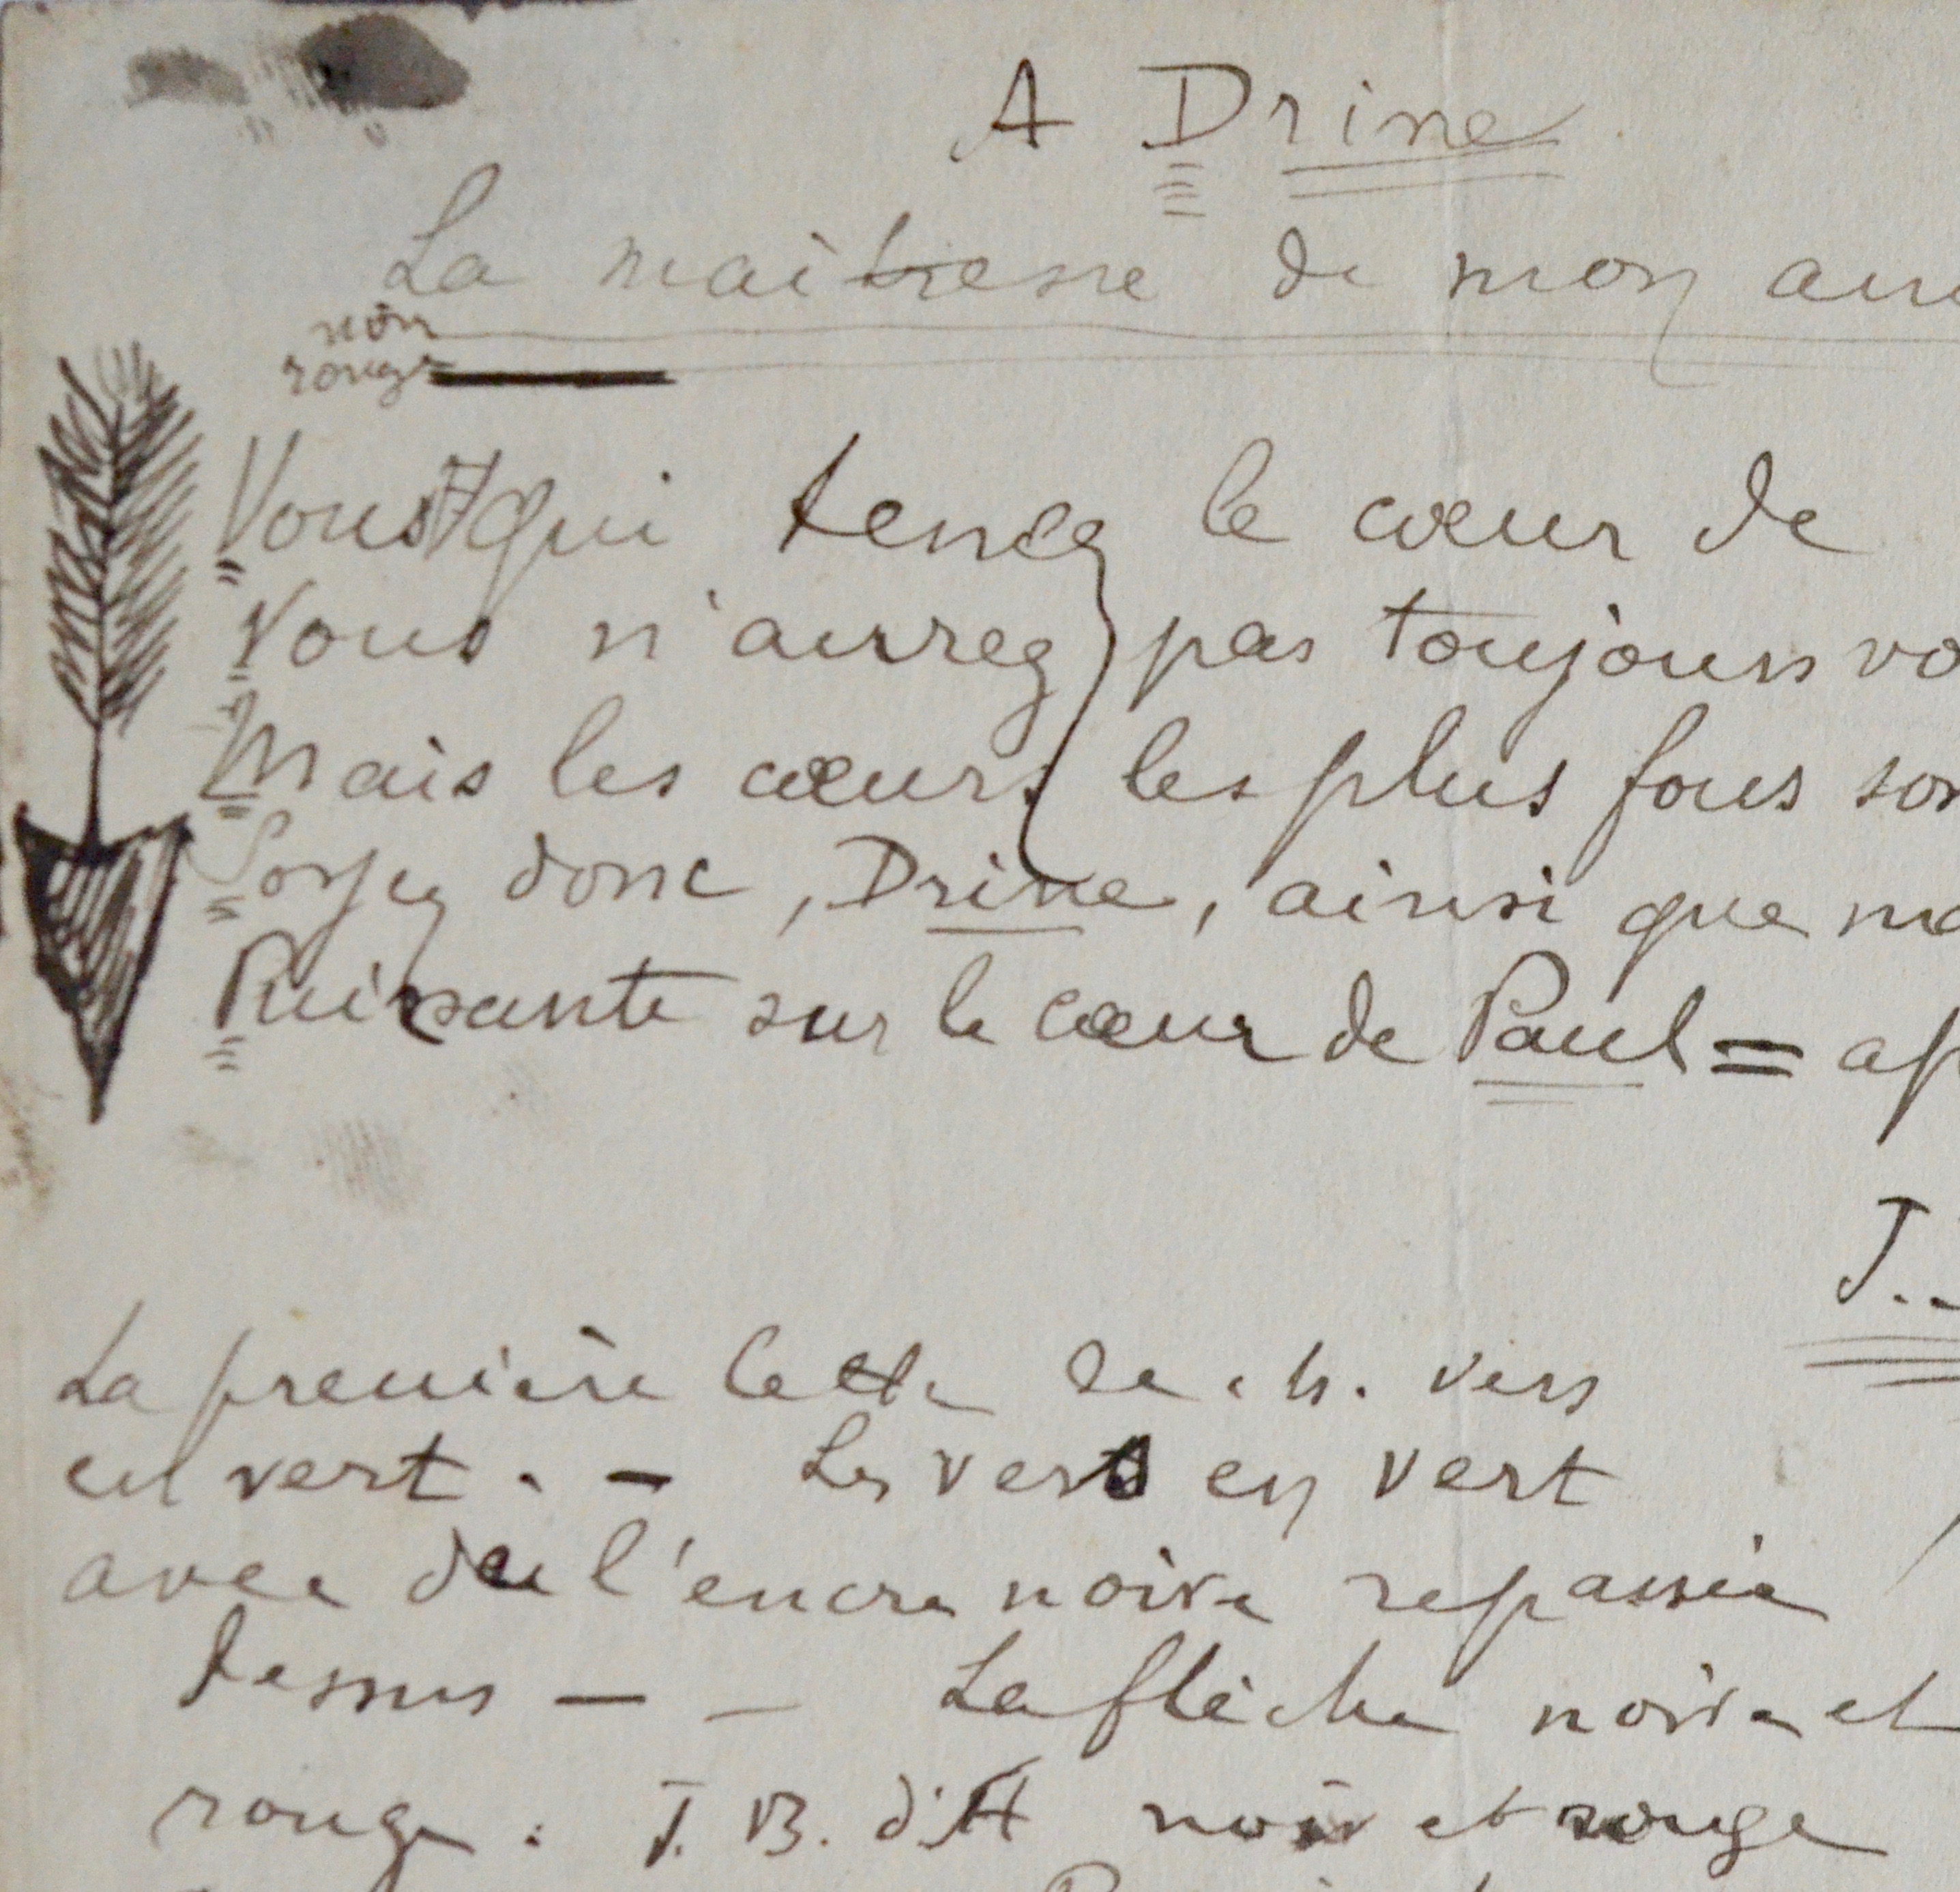 A Drine
La maîtresse de mon
noir
rouge
Vous qui tenez le cœur de
Vous n'aurez pas toujours
Mais les cœurs les plus fous
Soyez donc, Drine, ainsi que
Puissante sur le cœur de Paul =
J..
La première lettre de ch. vers
en vert. - Les vers en vert
avec de l'encre noire repassée
dessus — — La flèche noire et
rouge. J. B. d'A noir et rouge